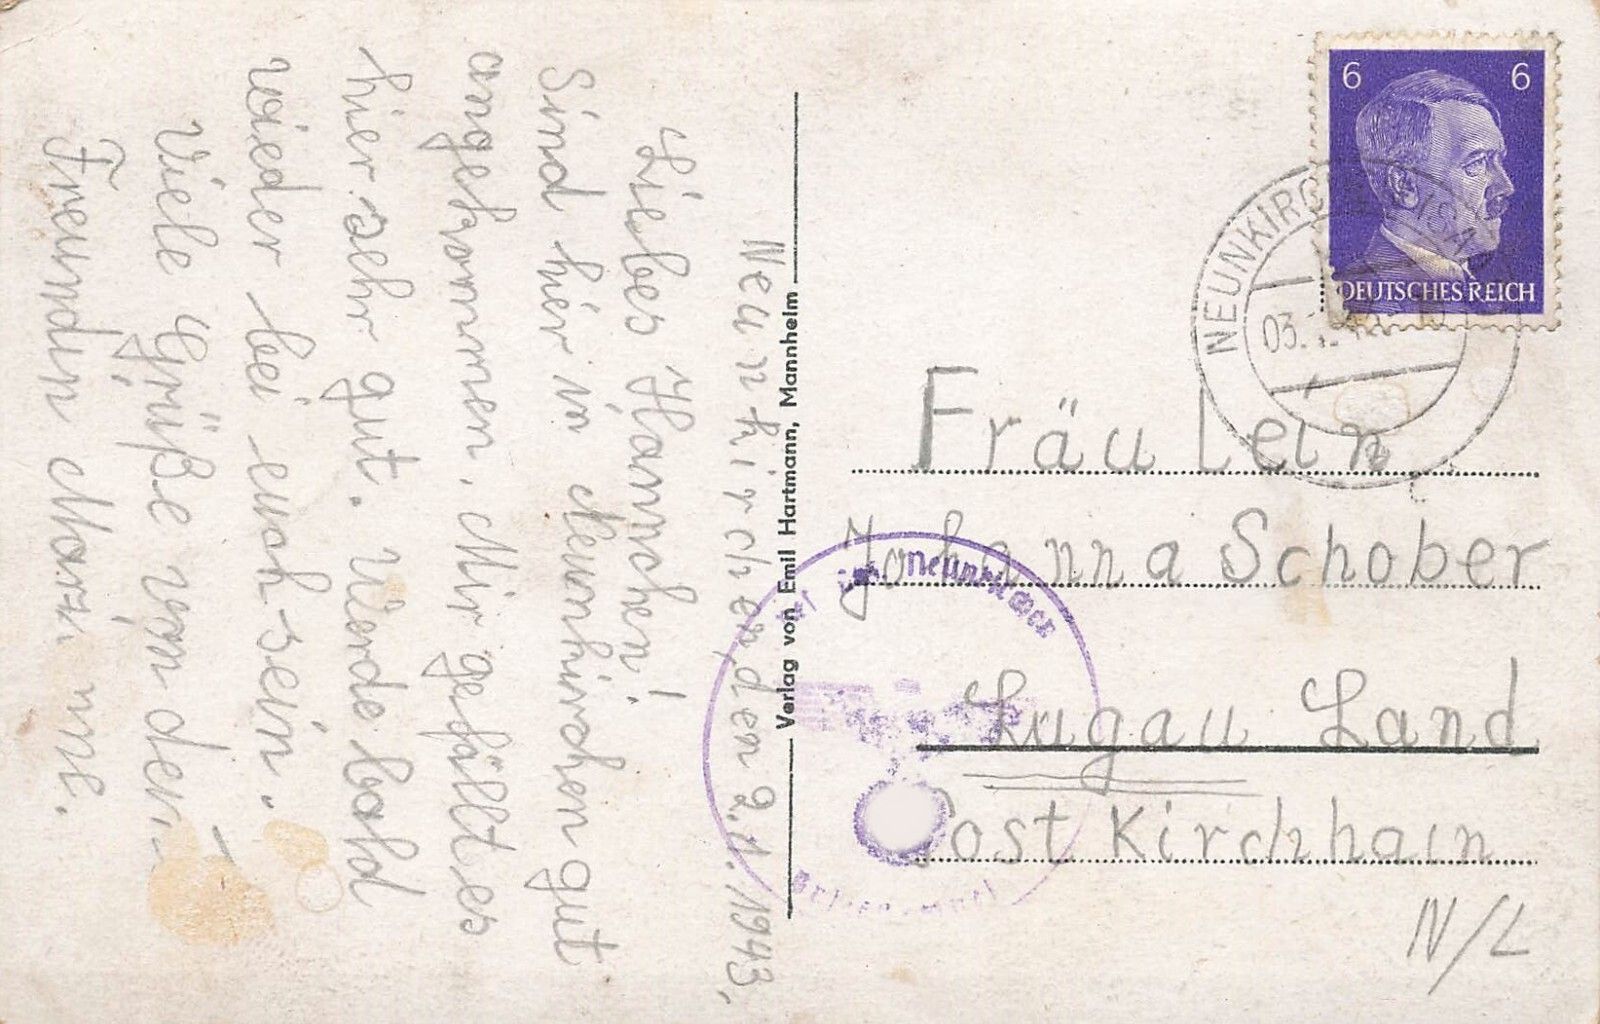 Neunkirchen, den 2.1.1943.
Liebes Hannchen!
Sind hier in Neunkirchen gut
angekommen. Mir gefällt es
hier sehr gut. Werde bald
wieder bei euch sein.
Viele Grüße von dei-
Freundin
Verlag von Emil Hartmann, Mannheim
6 6
DEUTSCHES REICH
Fräulein
Johanna Schober
Lugau Land
Post Kirchhain
N/L